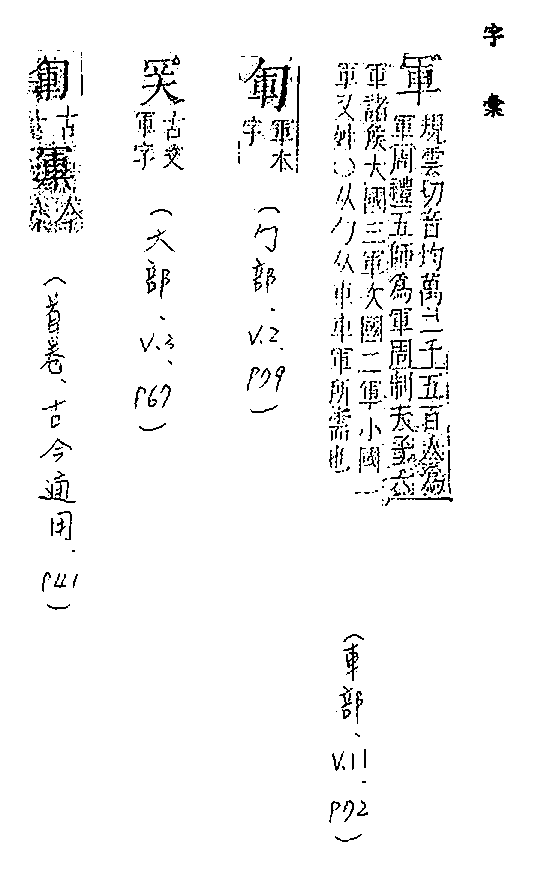 字彙
軍 規雲切音均萬二千五百人為
軍周禮五師為軍周制天子六
軍諸侯大國三軍次國二軍小國一
軍又姓〇从勹从車車軍所需也
(車部、V.11. P72)
軍本
字
(勹部、V.2. P79)
古文
軍字
(大部、V.3. P67)
古
軍 今
(首卷、古今通用. P41)